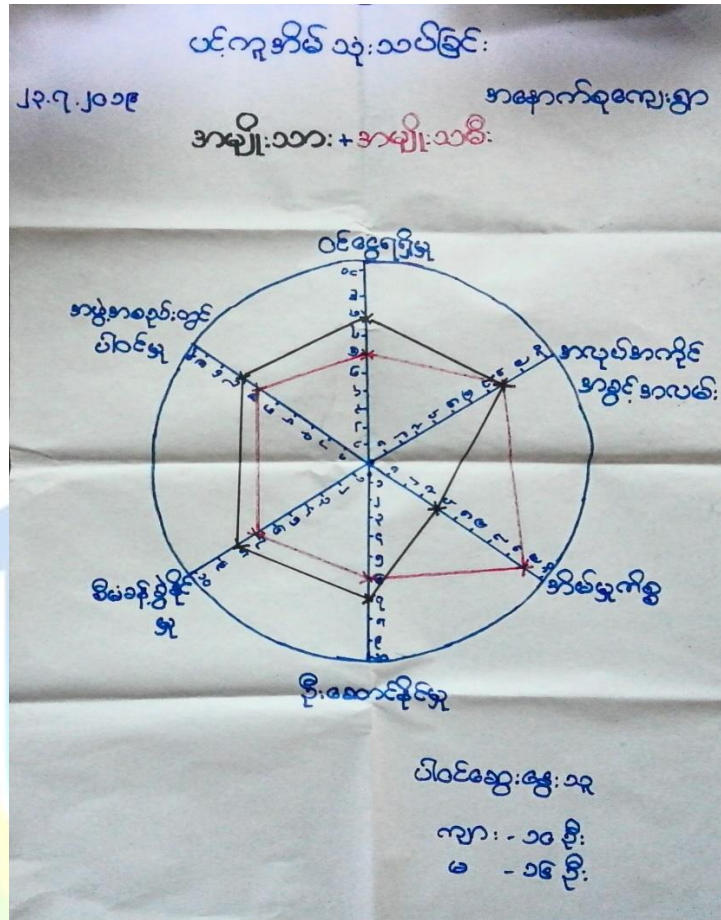 ပင့်ကူအိမ် သုံးသပ်ခြင်း
၂၃.၇.၂၀၁၉
အနောက်စုကျေးရွာ
အမျိုးသား + အမျိုးသမီး
ဝင်ငွေရရှိမှု
အဖွဲ့အစည်းတွင်
ပါဝင်မှု
အလုပ်အကိုင်
အခွင့်အလမ်း
စီမံခန့်ခွဲနိုင်
မှု
အိမ်မှုကိစ္စ
ဦးဆောင်နိုင်မှု
ပါဝင်ဆွေးနွေးသူ
ကျား - ၁၀ ဦး
မ - ၁၆ ဦး